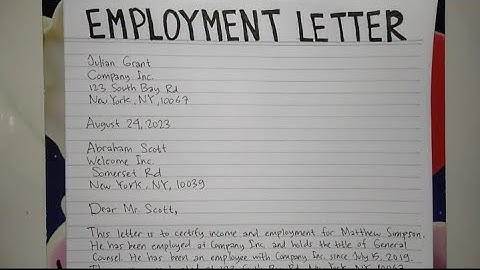 EMPLOYMENT LETTER
Julian Grant
Company Inc.
123 South Bay Rd
New York, NY, 10067
August 24, 2023
Abraham Scott
Welcome Inc.
Somerset Rd
New York, NY, 10039
Dear Mr. Scott,
This letter is to certify income and employment for Matthew Simpson.
He has been employed at Company Inc. and holds the title of General
Counsel. He has been an employee with Company Inc. since July 15, 2019.